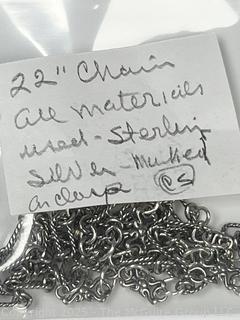 22" Chain
all materials
used - Sterling
Silver - Marked
on clasp